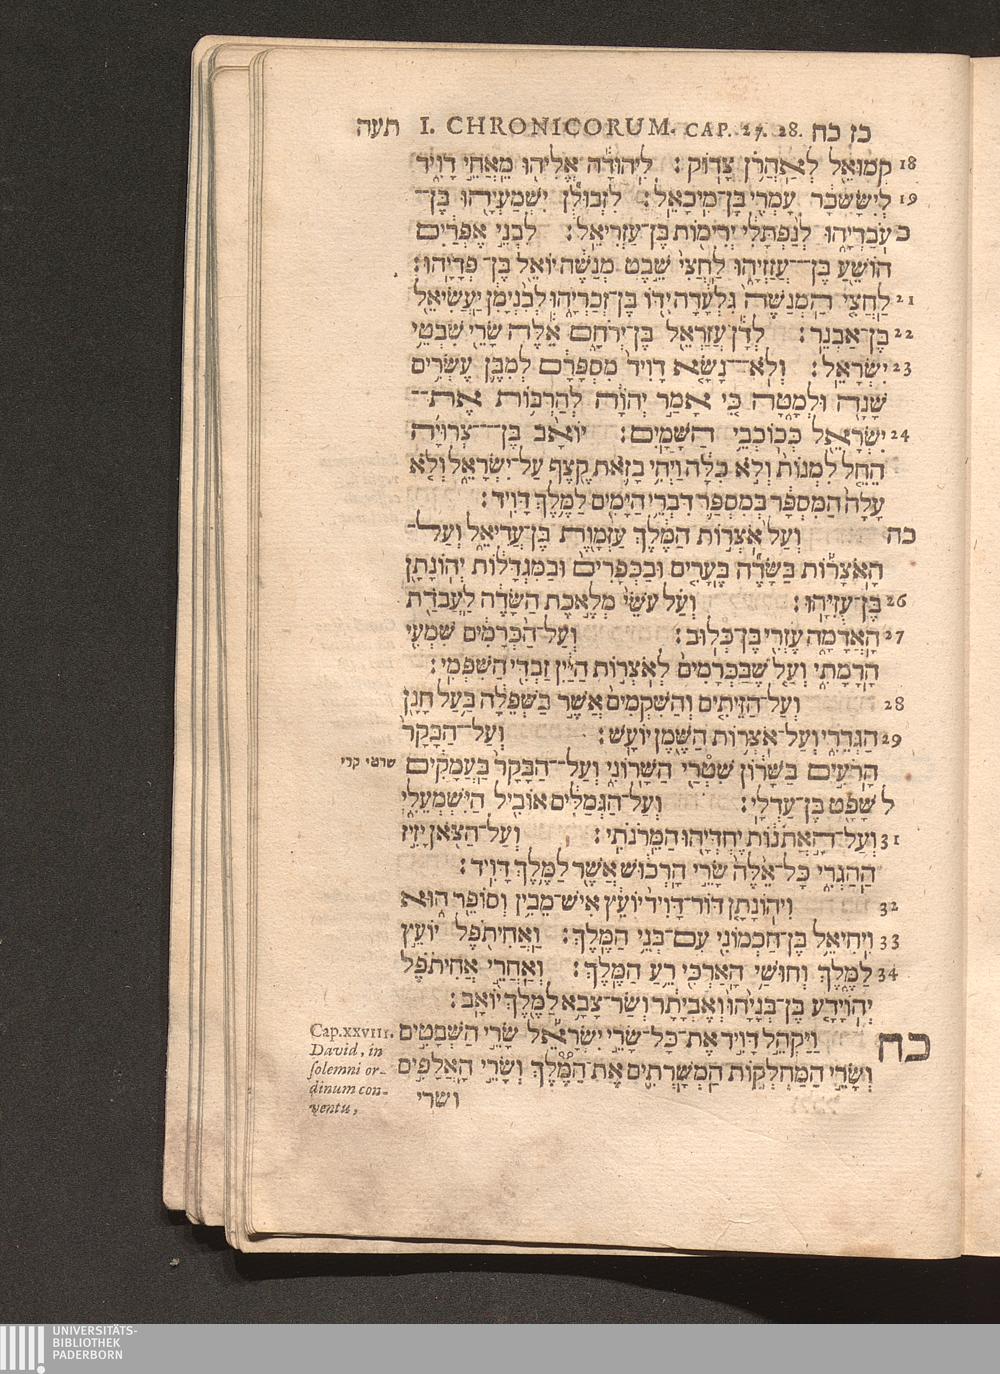 תעה I. CHRONICORUM. CAP. 27. 28. כז כח
18 קְמוּאֵל לְאַהֲרֹן צָדוֹק׃ לִיהוּדָה אֱלִיהוּ מֵאֲחֵי דָוִיד
19 לְיִשָּׂשכָר עָמְרִי בֶּן־מִיכָאֵל׃ לִזְבוּלֻן יִשְׁמַעְיָהוּ בֶּן־
כ עֹבַדְיָהוּ לְנַפְתָּלִי יְרִימוֹת בֶּן־עַזְרִיאֵל׃ לִבְנֵי אֶפְרַיִם
הוֹשֵׁעַ בֶּן־עֲזַזְיָהוּ לַחֲצִי שֵׁבֶט מְנַשֶּׁה יוֹאֵל בֶּן־פְּדָיָהוּ׃
21 לַחֲצִי הַמְנַשֶּׁה גִּלְעָדָה יִדּוֹ בֶּן־זְכַרְיָהוּ לְבִנְיָמִן יַעֲשִׂיאֵל
22 בֶּן־אַבְנֵר׃ לְדָן עֲזַרְאֵל בֶּן־יְרֹחָם אֵלֶּה שָׂרֵי שִׁבְטֵי
23 יִשְׂרָאֵל׃ וְלֹא־נָשָׂא דָוִיד מִסְפָּרָם לְמִבֶּן עֶשְׂרִים
שָׁנָה וּלְמָטָּה כִּי אָמַר יְהוָה לְהַרְבּוֹת אֶת־
24 יִשְׂרָאֵל כְּכוֹכְבֵי הַשָּׁמָיִם׃ יוֹאָב בֶּן־צְרוּיָה
הֵחֵל לִמְנוֹת וְלֹא כִלָּה וַיְהִי בָזֹאת קֶצֶף עַל־יִשְׂרָאֵל וְלֹא
עָלָה הַמִּסְפָּר בְּמִסְפַּר דִּבְרֵי הַיָּמִים לַמֶּלֶךְ דָּוִיד׃
כה וְעַל אֹצְרוֹת הַמֶּלֶךְ עַזְמָוֶת בֶּן־עֲדִיאֵל וְעַל־
הָאֹצָרוֹת בַּשָּׂדֶה בֶּעָרִים וּבַכְּפָרִים וּבַמִּגְדָּלוֹת יְהוֹנָתָן
26 בֶּן־עֻזִּיָּהוּ׃ וְעַל עֹשֵׂי מְלֶאכֶת הַשָּׂדֶה לַעֲבֹדַת
27 הָאֲדָמָה עֶזְרִי בֶּן־כְּלוּב׃ וְעַל־הַכְּרָמִים שִׁמְעִי
הָרָמָתִי וְעַל שֶׁבַּכְּרָמִים לְאֹצְרוֹת הַיַּיִן זַבְדִּי הַשִּׁפְמִי׃
28 וְעַל־הַזֵּיתִים וְהַשִּׁקְמִים אֲשֶׁר בַּשְּׁפֵלָה בַּעַל חָנָן
29 הַגְּדֵרִי וְעַל־אֹצְרוֹת הַשֶּׁמֶן יוֹעָשׁ׃ וְעַל־הַבָּקָר
הָרֹעִים בַּשָּׁרוֹן שִׁטְרַי הַשָּׁרוֹנִי וְעַל־הַבָּקָר בָּעֲמָקִים שרטי קרי
ל שָׁפָט בֶּן־עַדְלָי׃ וְעַל־הַגְּמַלִּים אוֹבִיל הַיִּשְׁמְעֵלִי
31 וְעַל־הָאֲתֹנוֹת יֶחְדְּיָהוּ הַמֵּרֹנֹתִי׃ וְעַל־הַצֹּאן יָזִיז
הַהַגְרִי כָּל־אֵלֶּה שָׂרֵי הָרְכוּשׁ אֲשֶׁר לַמֶּלֶךְ דָּוִיד׃
32 וִיהוֹנָתָן דּוֹד־דָּוִיד יוֹעֵץ אִישׁ־מֵבִין וְסוֹפֵר הוּא
33 וִיחִיאֵל בֶּן־חַכְמוֹנִי עִם־בְּנֵי הַמֶּלֶךְ׃ וַאֲחִיתֹפֶל יוֹעֵץ
34 לַמֶּלֶךְ וְחוּשַׁי הָאַרְכִּי רֵעַ הַמֶּלֶךְ׃ וְאַחֲרֵי אֲחִיתֹפֶל
יְהוֹיָדָע בֶּן־בְּנָיָהוּ וְאֶבְיָתָר וְשַׂר־צָבָא לַמֶּלֶךְ יוֹאָב׃
כח וַיַּקְהֵל דָּוִיד אֶת־כָּל־שָׂרֵי יִשְׂרָאֵל שָׂרֵי הַשְּׁבָטִים
וְשָׂרֵי הַמַּחְלְקוֹת הַמְשָׁרְתִים אֶת־הַמֶּלֶךְ וְשָׂרֵי הָאֲלָפִים
ושרי
Cap.xxviii.
David, in
solemni or-
dinum con-
ventu,
UNIVERSITÄTS-
BIBLIOTHEK
PADERBORN